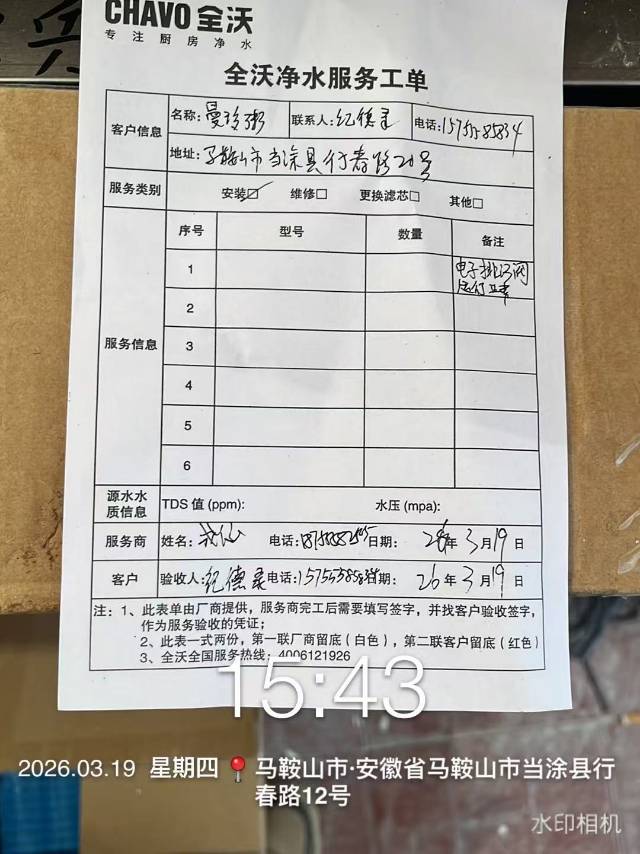 CHAVO 全沃
专注厨房净水
全沃净水服务工单
客户信息
名称: 曼玲粥
联系人: 纪德柔
电话: 15755585834
地址: 马鞍山市当涂县行春路20号
服务类别
安装☑ 维修□ 更换滤芯□ 其他□
服务信息
序号 型号 数量 备注
1 电子排污阀
运行正常
2
3
4
5
6
源水水质信息
TDS 值 (ppm): 水压 (mpa):
服务商 姓名: 电话: 日期: 26年 3月19日
客户 验收人: 纪德柔 电话: 15755585834 日期: 26年 3月19日
注: 1、此表单由厂商提供，服务商完工后需要填写签字，并找客户验收签字，
作为服务验收的凭证；
2、此表一式两份，第一联厂商留底（白色），第二联客户留底（红色）
3、全沃全国服务热线：4006121926
15:43
2026.03.19 星期四 马鞍山市·安徽省马鞍山市当涂县行
春路12号
水印相机